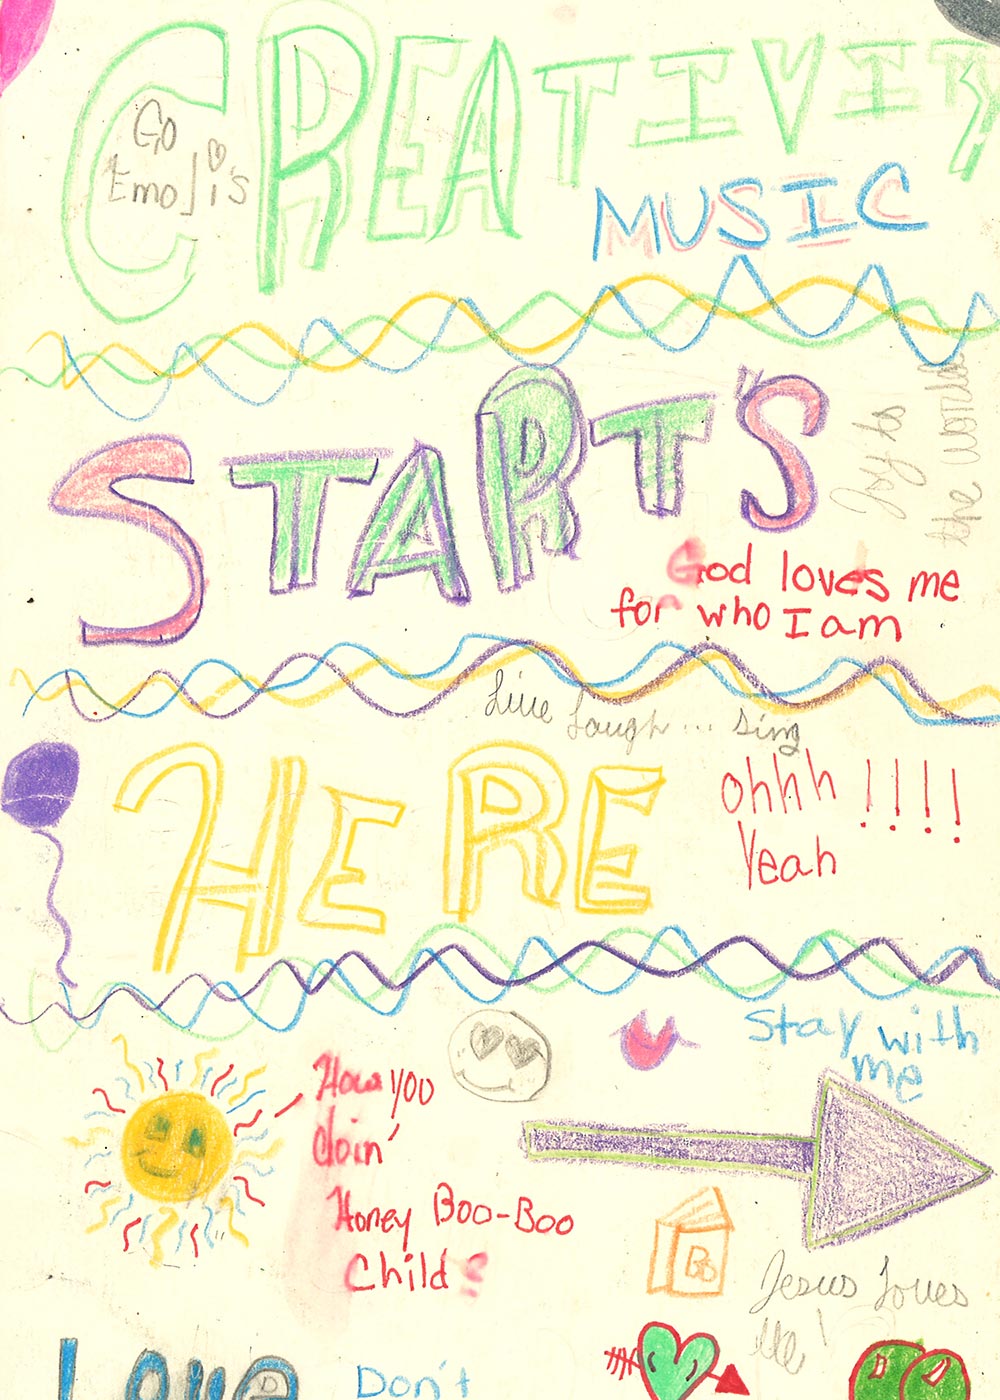 CREATIVITY
Go
Emoji's
MUSIC
START'S
Joy to
the world
God loves me
for who I am
Live Laugh... Sing
HERE
Ohhh !!!!
Yeah
Stay with
me
How you
doin'
Honey Boo-Boo
Child?
Jesus Loves
Me!
Love
Don't